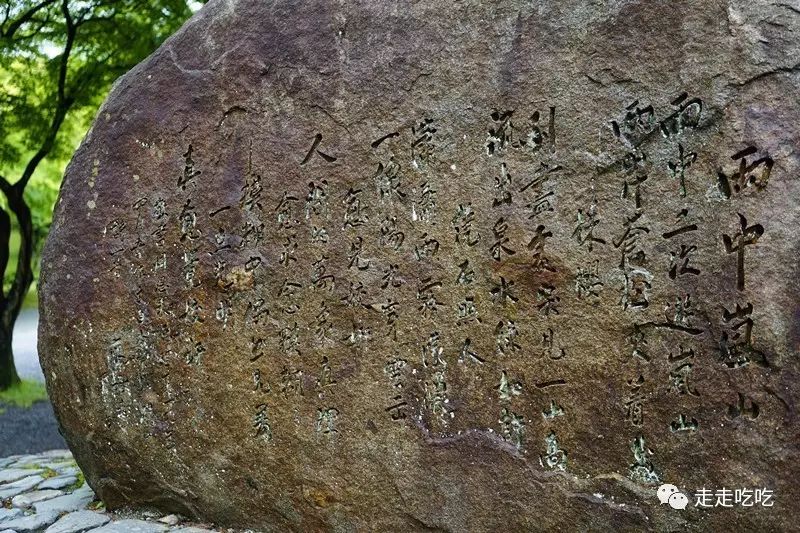 雨中嵐山
雨中二次遊嵐山
兩岸蒼松夾着幾
株櫻
到盡處突見一山高
流出泉水綠如許
繞石照人
瀟瀟雨霧濛濃
一線陽光穿雲出
愈見姣妍
人間的萬象真理
愈求愈模糊
模糊中偶然見着
一点光明
真愈覺姣妍